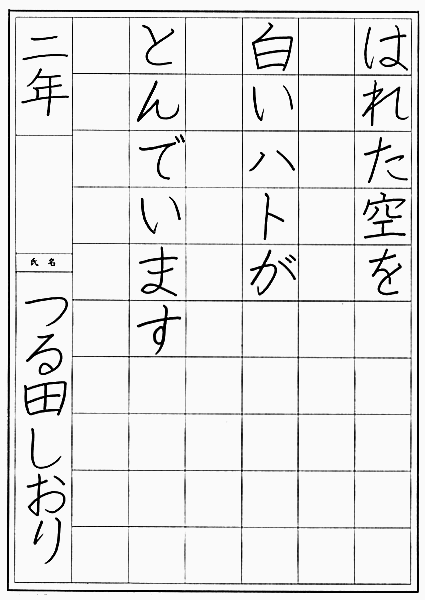 はれた空を
白いハトが
とんでいます
二年
氏名
つる田しおり